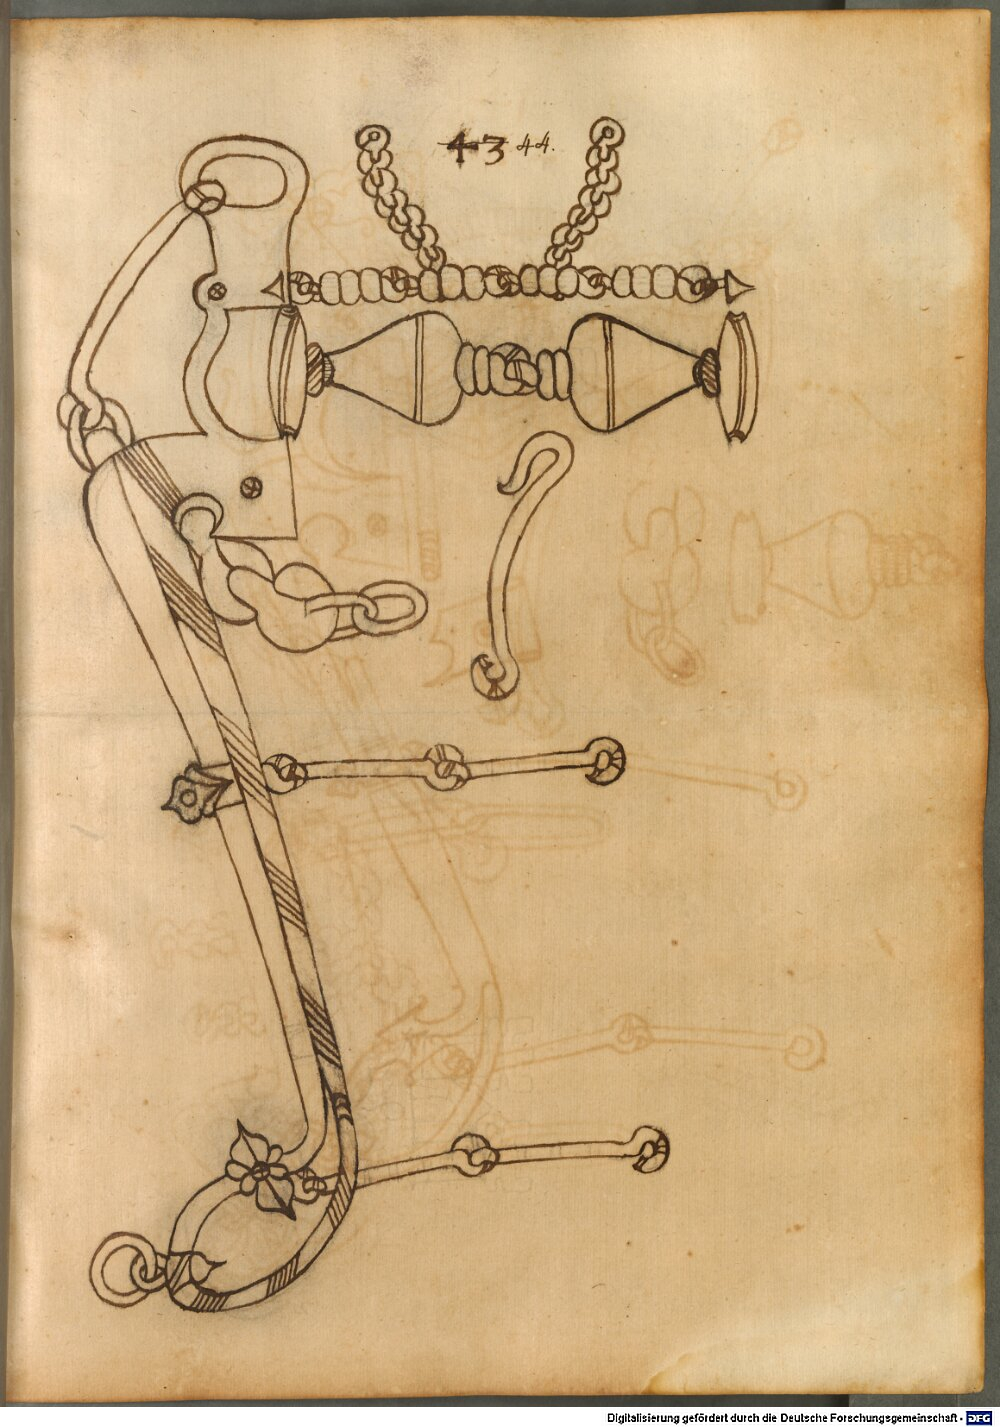 43 44.
Digitalisierung gefördert durch die Deutsche Forschungsgemeinschaft - DFG